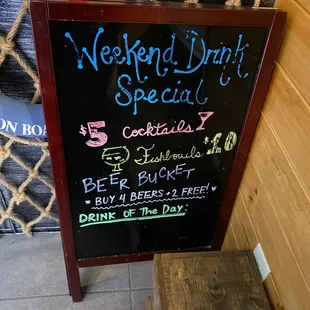 ON BO
Weekend Drink
Special
$5 Cocktails
Fishbowls $10
BEER BUCKET
* BUY 4 BEERS + 2 FREE! *
DRINK OF THE DAY: